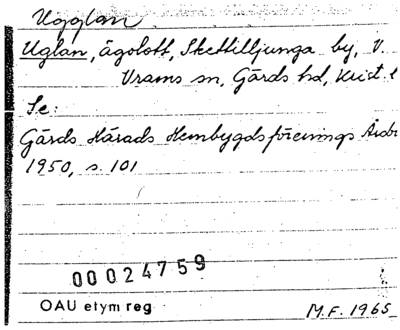 Ugglan
Uglan, ägolott, Skettilljunga by, V.
Vrams sn, Gärds hd, Krist. l
Se:
Gärds Härads Hembygdsförenings Årsbo
1950, s. 101
00024759
OAU etym reg
M.F. 1965